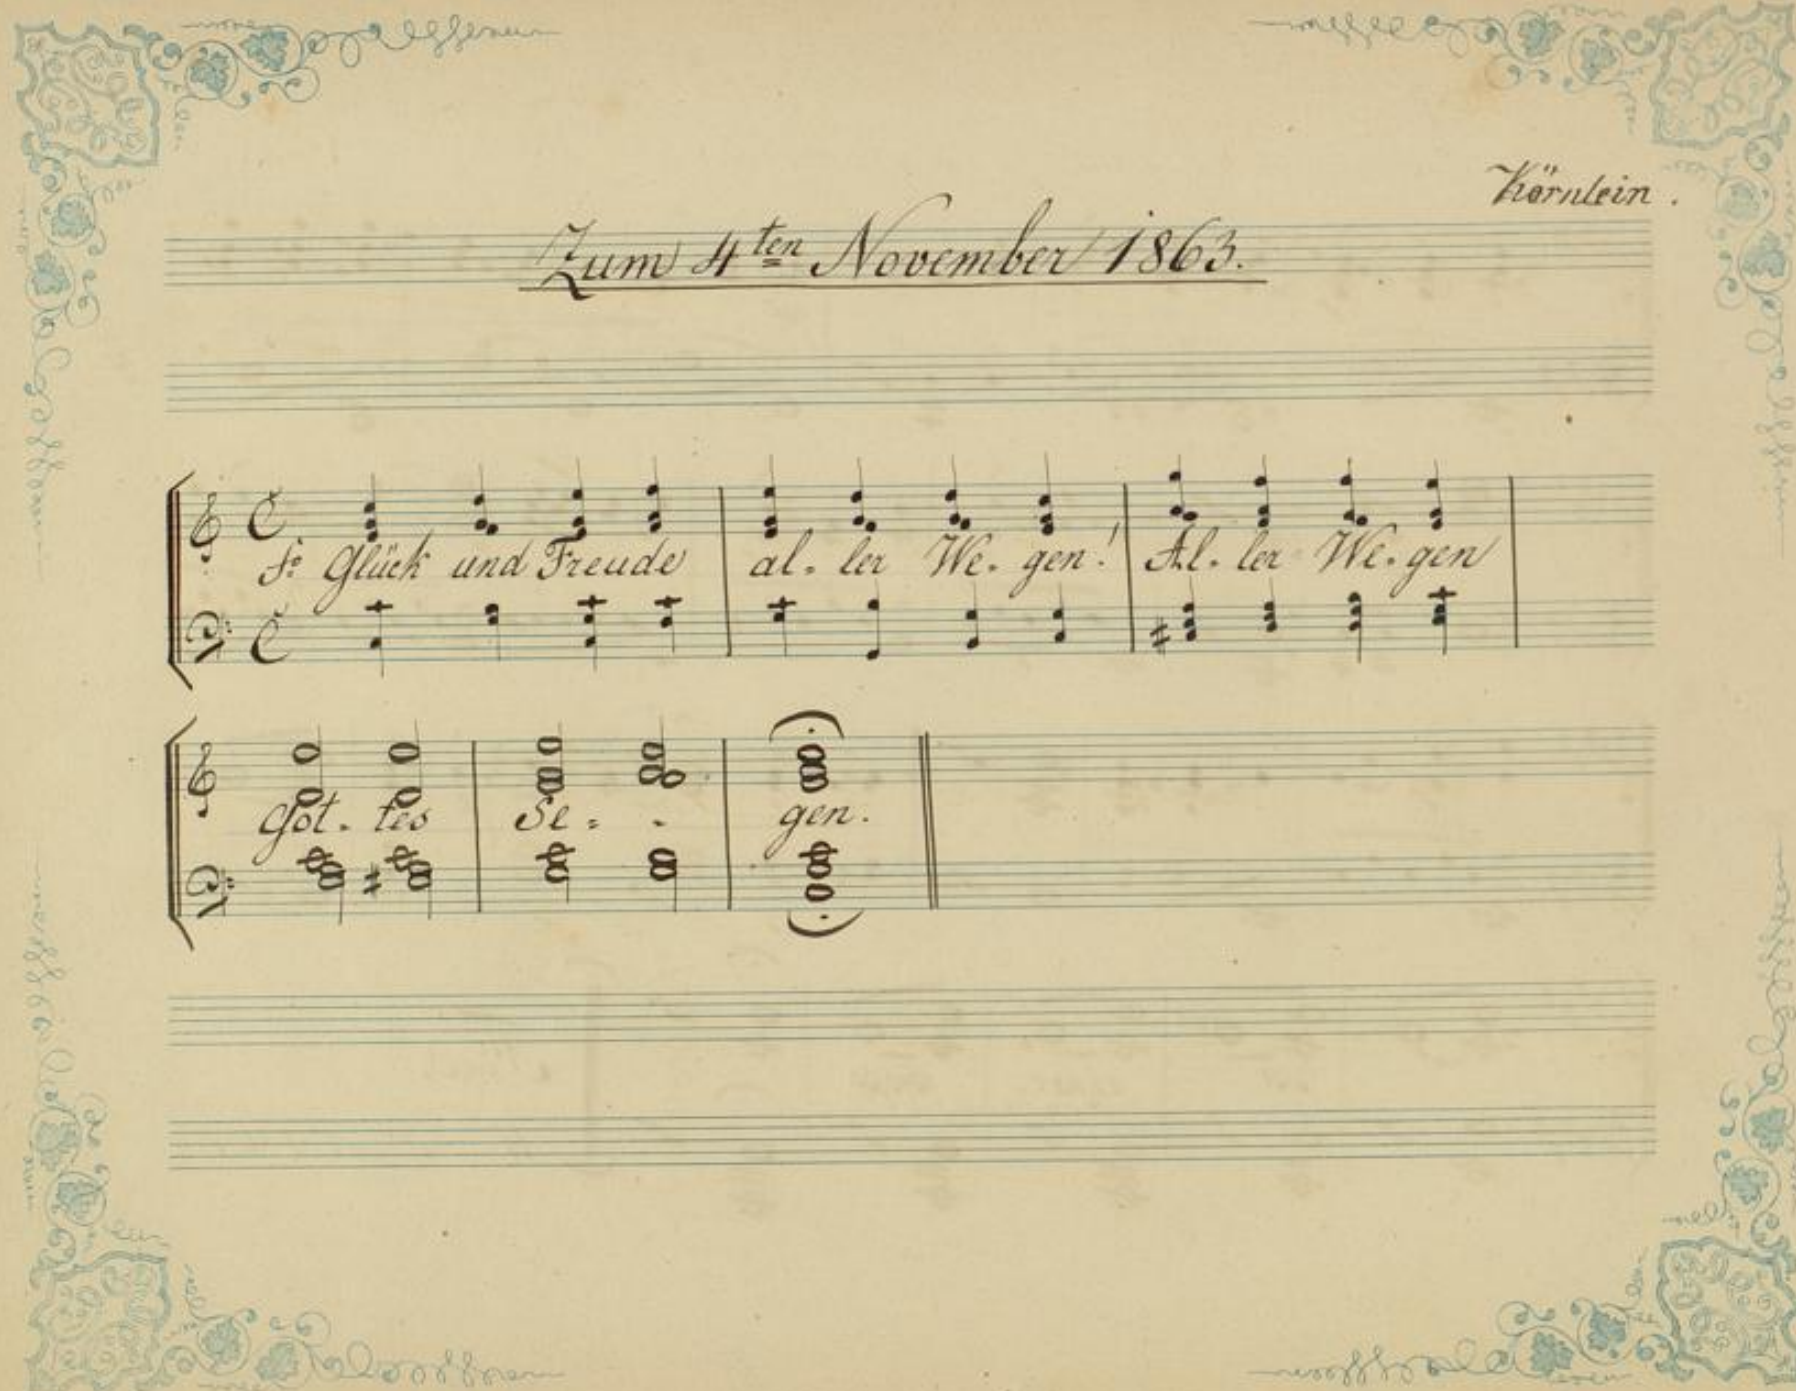 Körnlein.
Zum 4ten November 1863.
Glück und Freude al-ler We-gen! Al-ler We-gen
Got-tes Se- - gen.